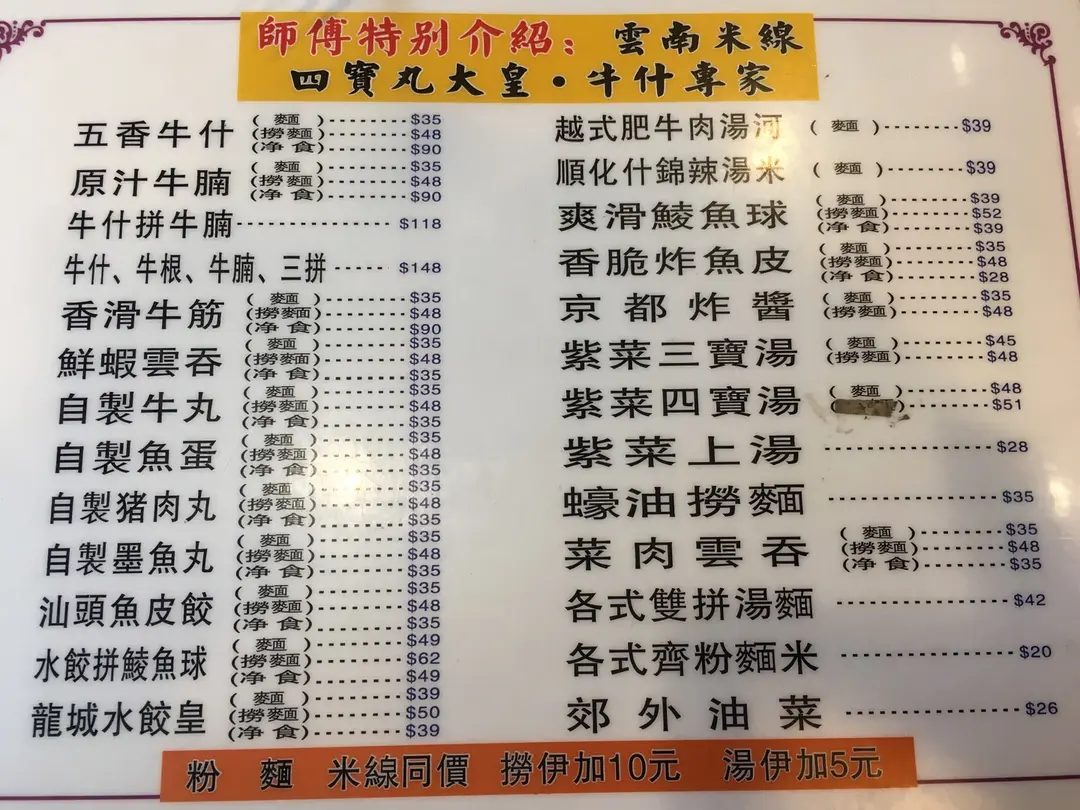 師傅特别介紹：雲南米線
四寶丸大皇•牛什專家
五香牛什 (麵) $35
(撈麵) $48
(净食) $90
原汁牛腩 (麵) $35
(撈麵) $48
(净食) $90
牛什拼牛腩 $118
牛什、牛根、牛腩、三拼 $148
香滑牛筋 (麵) $35
(撈麵) $48
(净食) $90
鮮蝦雲吞 (麵) $35
(撈麵) $48
(净食) $35
自製牛丸 (麵) $35
(撈麵) $48
(净食) $35
自製魚蛋 (麵) $35
(撈麵) $48
(净食) $35
自製猪肉丸 (麵) $35
(撈麵) $48
(净食) $35
自製墨魚丸 (麵) $35
(撈麵) $48
(净食) $35
汕頭魚皮餃 (麵) $35
(撈麵) $48
(净食) $35
水餃拼鯪魚球 (麵) $49
(撈麵) $62
(净食) $49
龍城水餃皇 (麵) $39
(撈麵) $50
(净食) $39
越式肥牛肉湯河 (麵) $39
順化什錦辣湯米 (麵) $39
爽滑鯪魚球 (麵) $39
(撈麵) $52
(净食) $39
香脆炸魚皮 (麵) $35
(撈麵) $48
(净食) $28
京都炸醬 (麵) $35
(撈麵) $48
紫菜三寶湯 (麵) $45
(撈麵) $48
紫菜四寶湯 (麵) $48
$51
紫菜上湯 $28
蠔油撈麵 $35
菜肉雲吞 (麵) $35
(撈麵) $48
(净食) $35
各式雙拼湯麵 $42
各式齊粉麵米 $20
郊外油菜 $26
粉 麵 米線同價 撈伊加10元 湯伊加5元